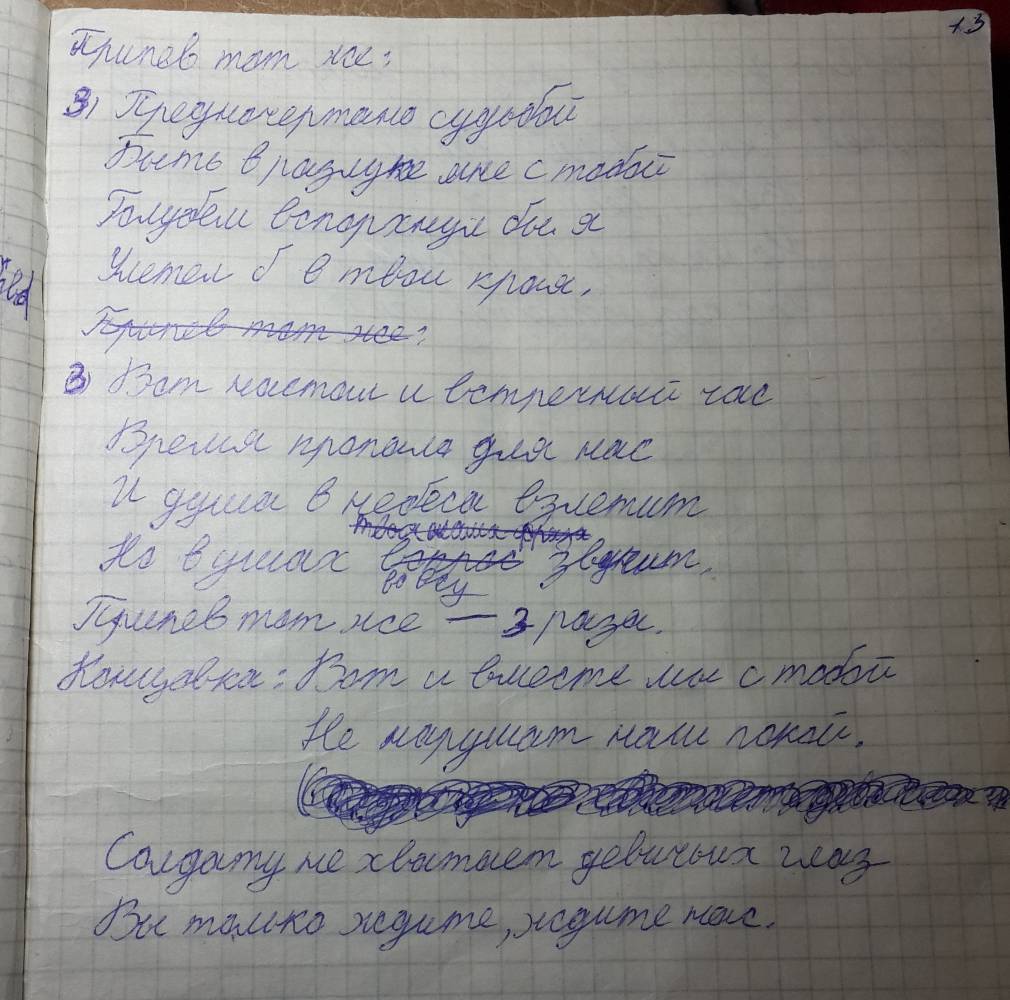 13
Припев тот же:
3) Предначертано судьбой
Быть в разлуке мне с тобой
Голубем вспорхнул бы я
Улетел б в твои края.
Припев тот же:
3) Вот настал и встречный час
Время пропало для нас
И душа в небеса взлетит
твоя фраза
Но в ушах звучит.
Припев тот же — 3 раза.
Концовка: Вот и вместе мы с тобой
Не нарушат наш покой.
Солдату не хватает девичьих глаз
Вы только ждите, ждите нас.